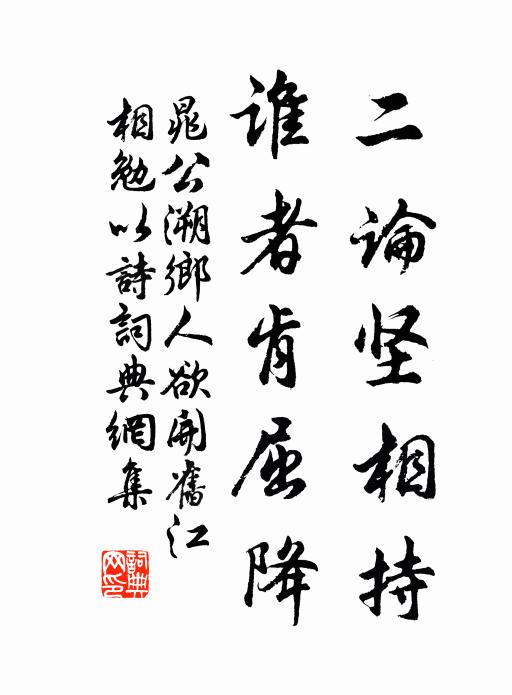 二论坚相持
谁者肯屈降
晁公溯鄉人欲開舊江
相勉以詩詞典網集
詞典
网印